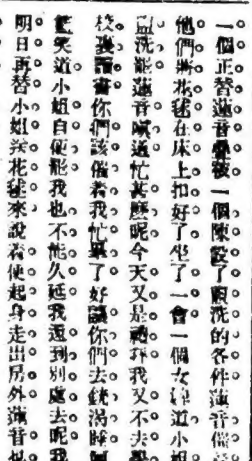 一個正替蓮音疊被一個陳設了盥洗的各件蓮音
他們將花毬在床上扣好了坐了一會一個女道小姐
盥洗罷蓮音道忙甚麽呢今天又是禮拜我又不去學
校讀書你們該儘着我忙了好讓你們去睡
籃笑道小姐自便罷我也不能久延我還到別處去呢我
明日再替小姐送花毬來說着便起身走出房外蓮音也